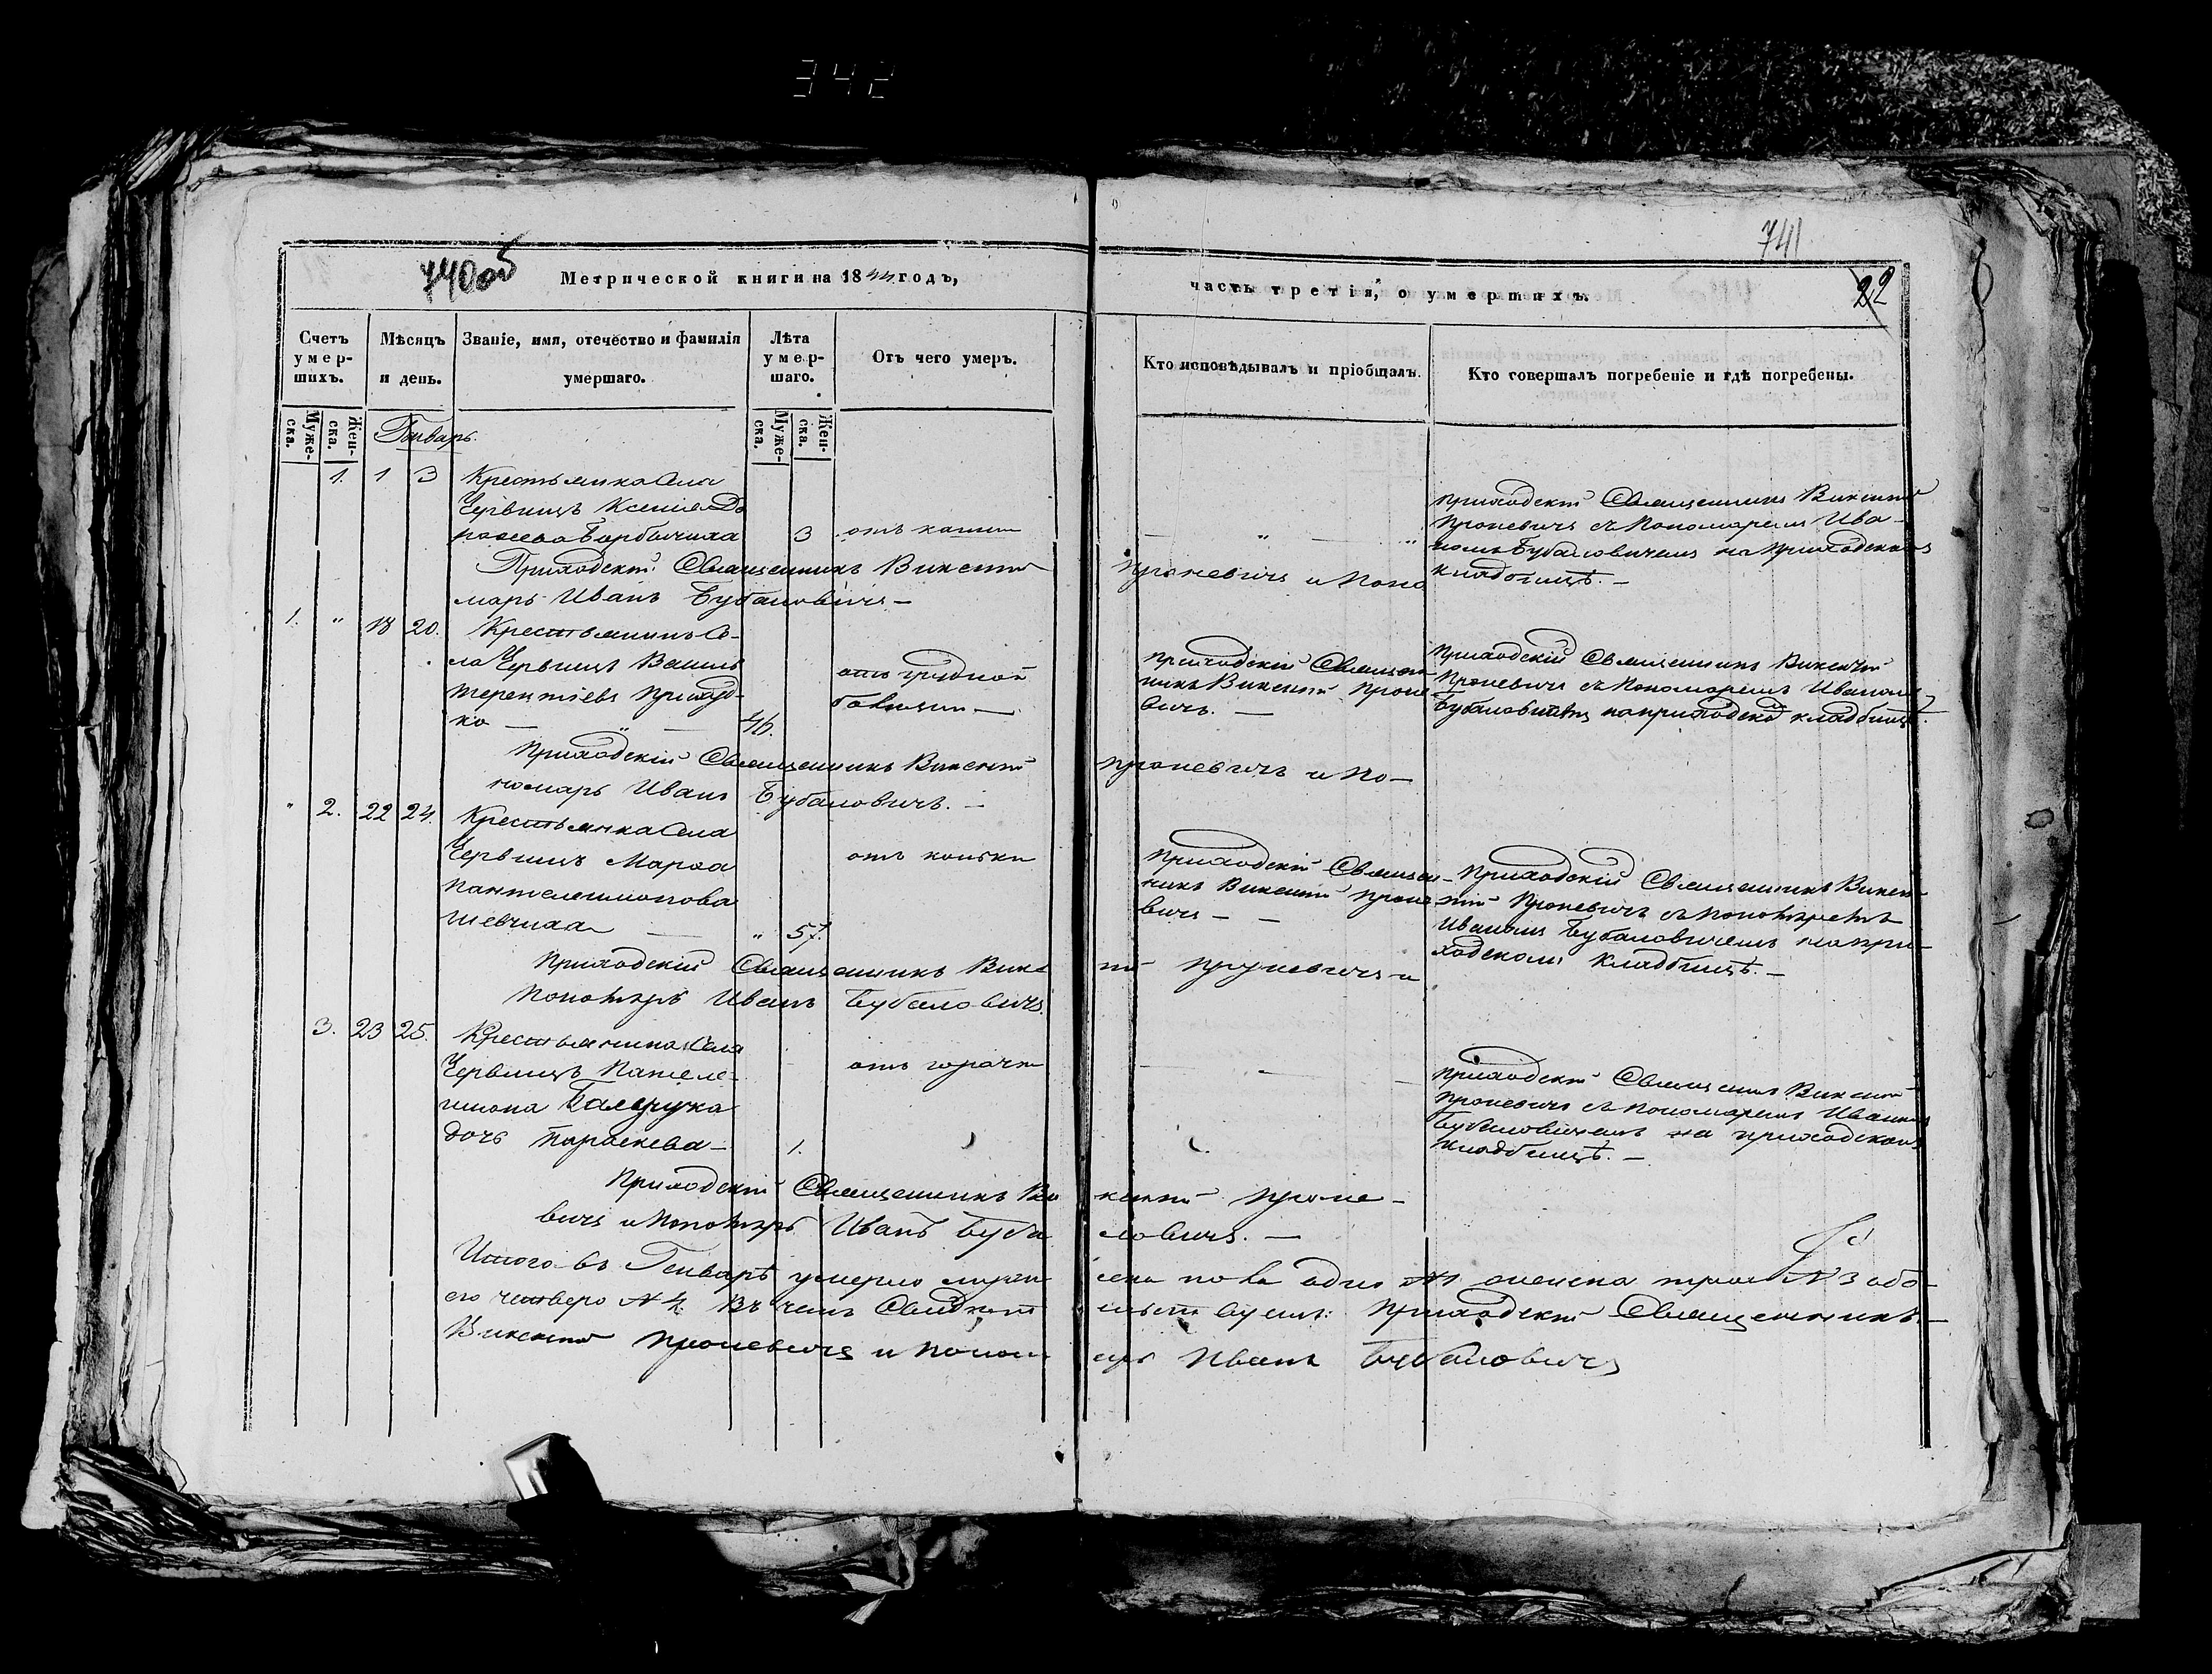 342
741
740об
Метрической книги на 1844 годъ,
часть третія, о умершихъ.
22
Счетъ умер-шихъ.
Мѣсяцъ и день.
Званіе, имя, отечество и фамилія умершаго.
Лѣта умер-шаго.
Отъ чего умеръ.
Кто исповѣдывалъ и пріобщалъ.
Кто совершалъ погребеніе и гдѣ погребены.
Муже-ска.
Жен-ска.
Генварь.
Муже-ска.
Жен-ска.
1. 1 3
Крестьянка Села
Червищъ Ксенія
3
отъ кашли
Приходскій Священникъ Викентій
Проневичъ съ Пономаремъ Ива-
номъ Бубаловичемъ на приходскомъ
кладбищѣ. —
Приходскій Священникъ Викентій Проневичъ и Поно
марь Иванъ Бубаловичъ —
1. " 18 20.
Крестьянинъ Се-
ла Червищъ Василь
Терентіевъ Приход-
ко — " — 46.
отъ грудной
болезни —
Приходскій Священ
никъ Викентій Проне
вичъ. —
Приходскій Священникъ Викентій
Проневичъ съ Пономаремъ Иваномъ
Бубаловичемъ на приходском кладбищѣ.
Приходскій Священникъ Викентій Проневичъ и По-
номарь Иванъ Бубаловичъ. —
" 2. 22 24.
Крестьянка Села
Червищъ Марѳа
Пантелеимонова
Шевчиха —
" 57.
отъ
Приходскій Священ-
никъ Викентій Проне
вичъ — —
Приходскій Священникъ Викен
тій Проневичъ съ Пономаремъ
Иваномъ Бубаловичемъ на при-
ходскомъ кладбищѣ. —
Приходскій Священникъ Вике тій Проневичъ и
Пономарь Иванъ Бубаловичъ.
3. 23 25.
Крестьянина Села
Червищъ Пантеле-
имона
дочь Параскева —
1.
отъ горячки
Приходскій Викентій
Проневичъ съ Пономаремъ Иваномъ
Бубаловичемъ на приходскомъ
кладбищѣ. —
Приходскій Священникъ Ви кентій Проне-
вичъ и Пономарь Иванъ Буба ловичъ. —
Итого въ Генварѣ умерло муже ска пола одно №1 женска трое №3 обо-
его четверо №4. Въ чемъ Свидѣт ельствуемъ: Приходскій Священникъ
Викентій Проневичъ и Поном арь Иванъ Бубаловичъ